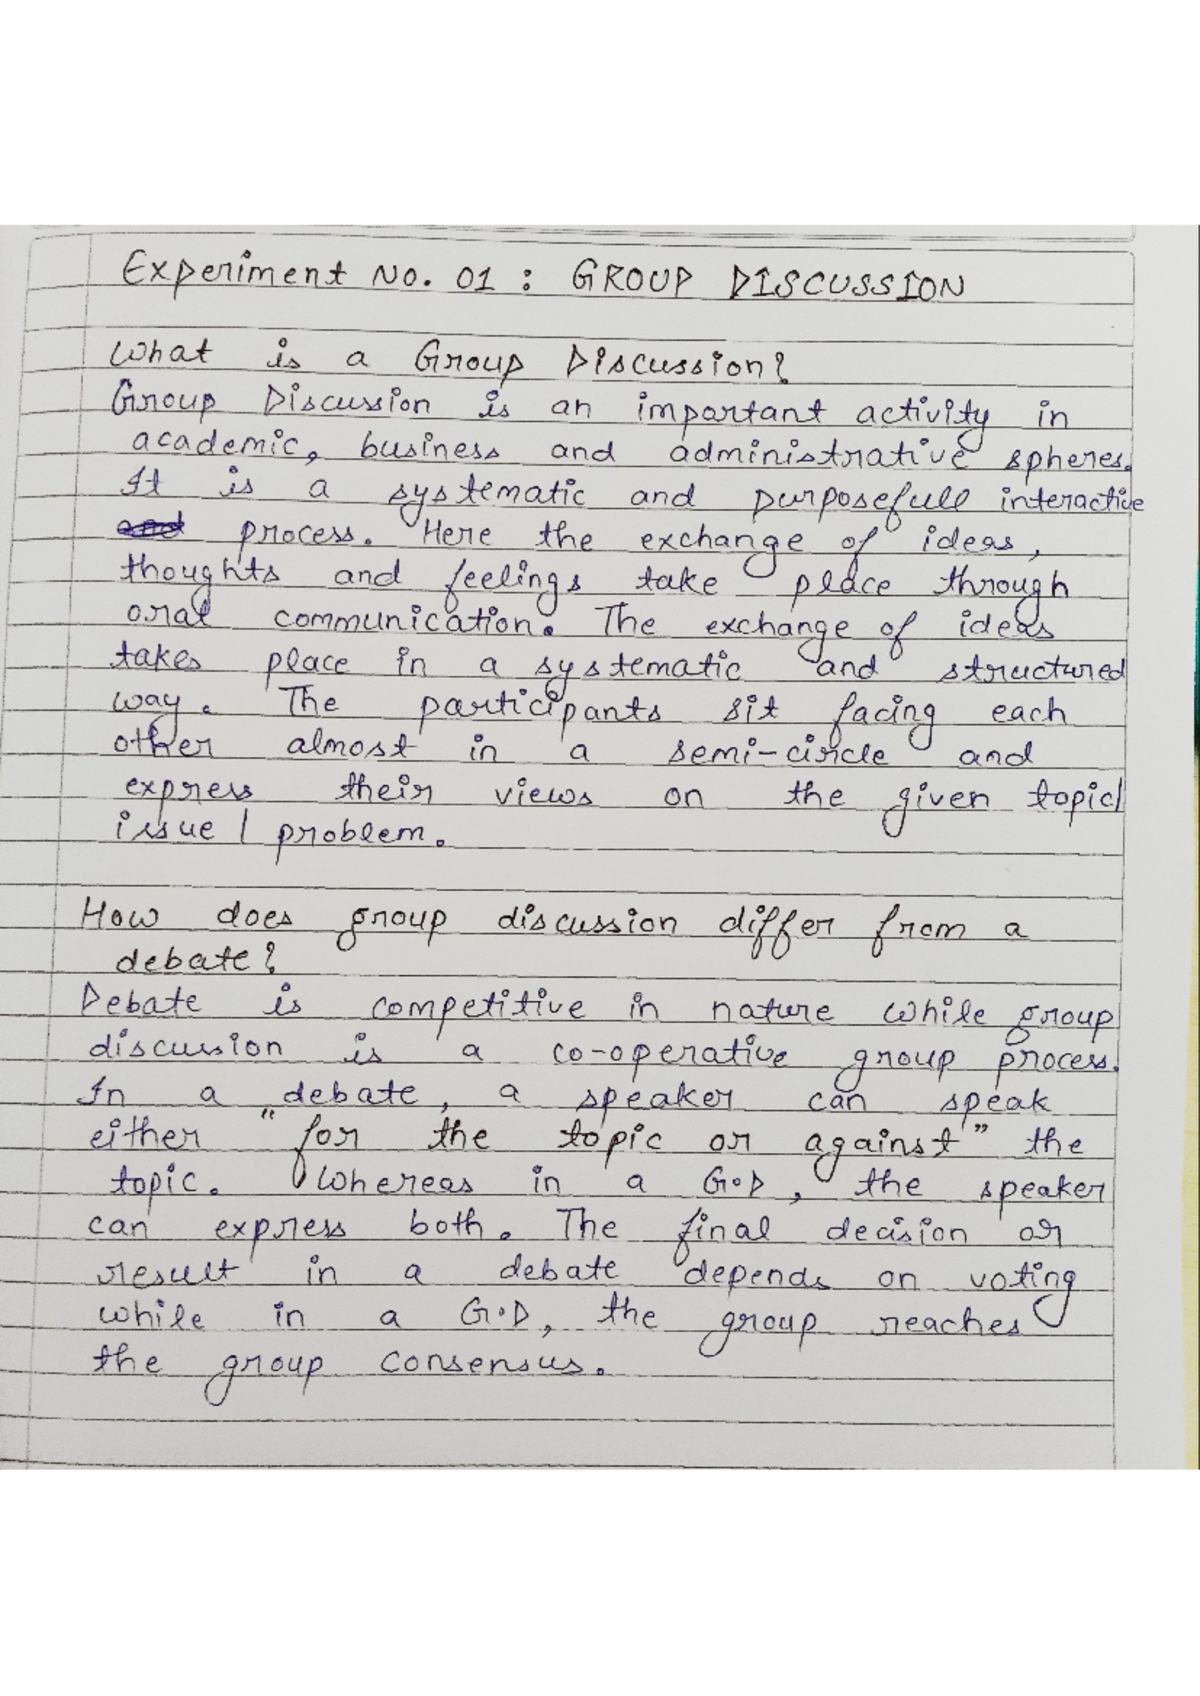 Experiment No. 01 : GROUP DISCUSSION
What is a Group Discussion?
Group Discussion is an important activity in
academic, business and administrative spheres.
It is a systematic and purposefull interactive
and process. Here the exchange of ideas,
thoughts and feelings take place through
oral communication. The exchange of ideas
takes place in a systematic and structured
way. The participants sit facing each
other almost in a semi-circle and
express their views on the given topic/
issue / problem.
How does group discussion differ from a
debate?
Debate is competitive in nature while group
discussion is a co-operative group process.
In a debate, a speaker can speak
either "for the topic or against" the
topic. Whereas in a G.D, the speaker
can express both. The final decision or
result in a debate depends on voting
while in a G.D, the group reaches
the group consensus.